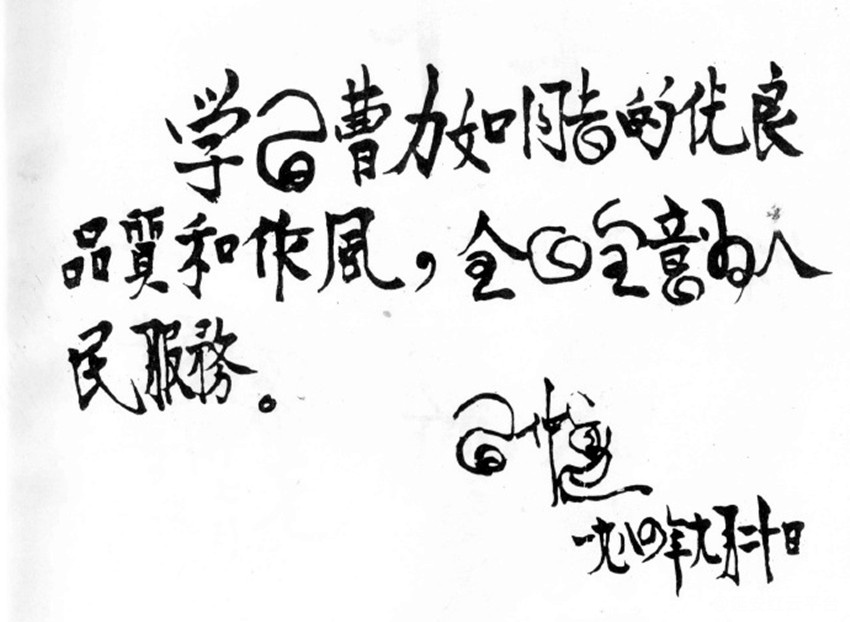 学習曹力如同志的优良
品質和作風，全心全意为人
民服務。
習仲勋
一九八四年九月二十日